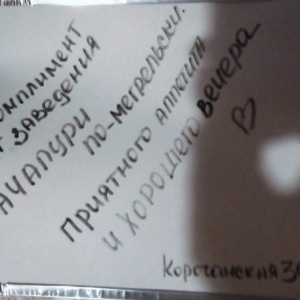 омплимент
заведения
ачапури
по-мегрельски.
приятного аппетита
и хорошего вечера
Корочанская 3